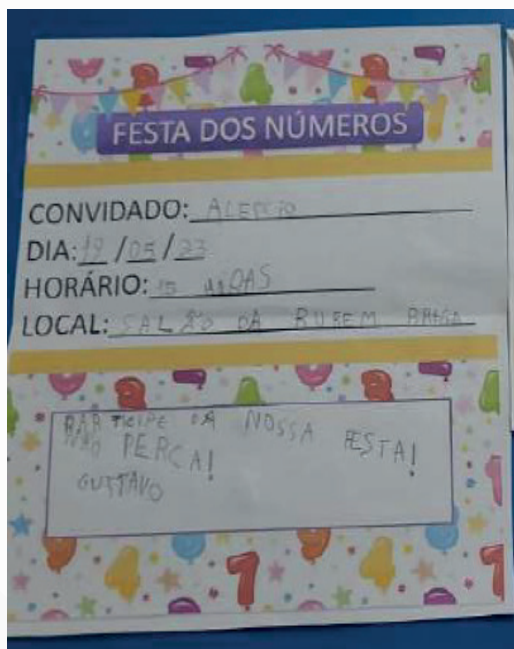 FESTA DOS NÚMEROS
CONVIDADO:
DIA: 19 / 05 / 23
HORÁRIO: 15
LOCAL: SALÃO DA RUBEM BRAGA
PARTICIPE DA NOSSA FESTA!
NÃO PERCA!
GUSTAVO